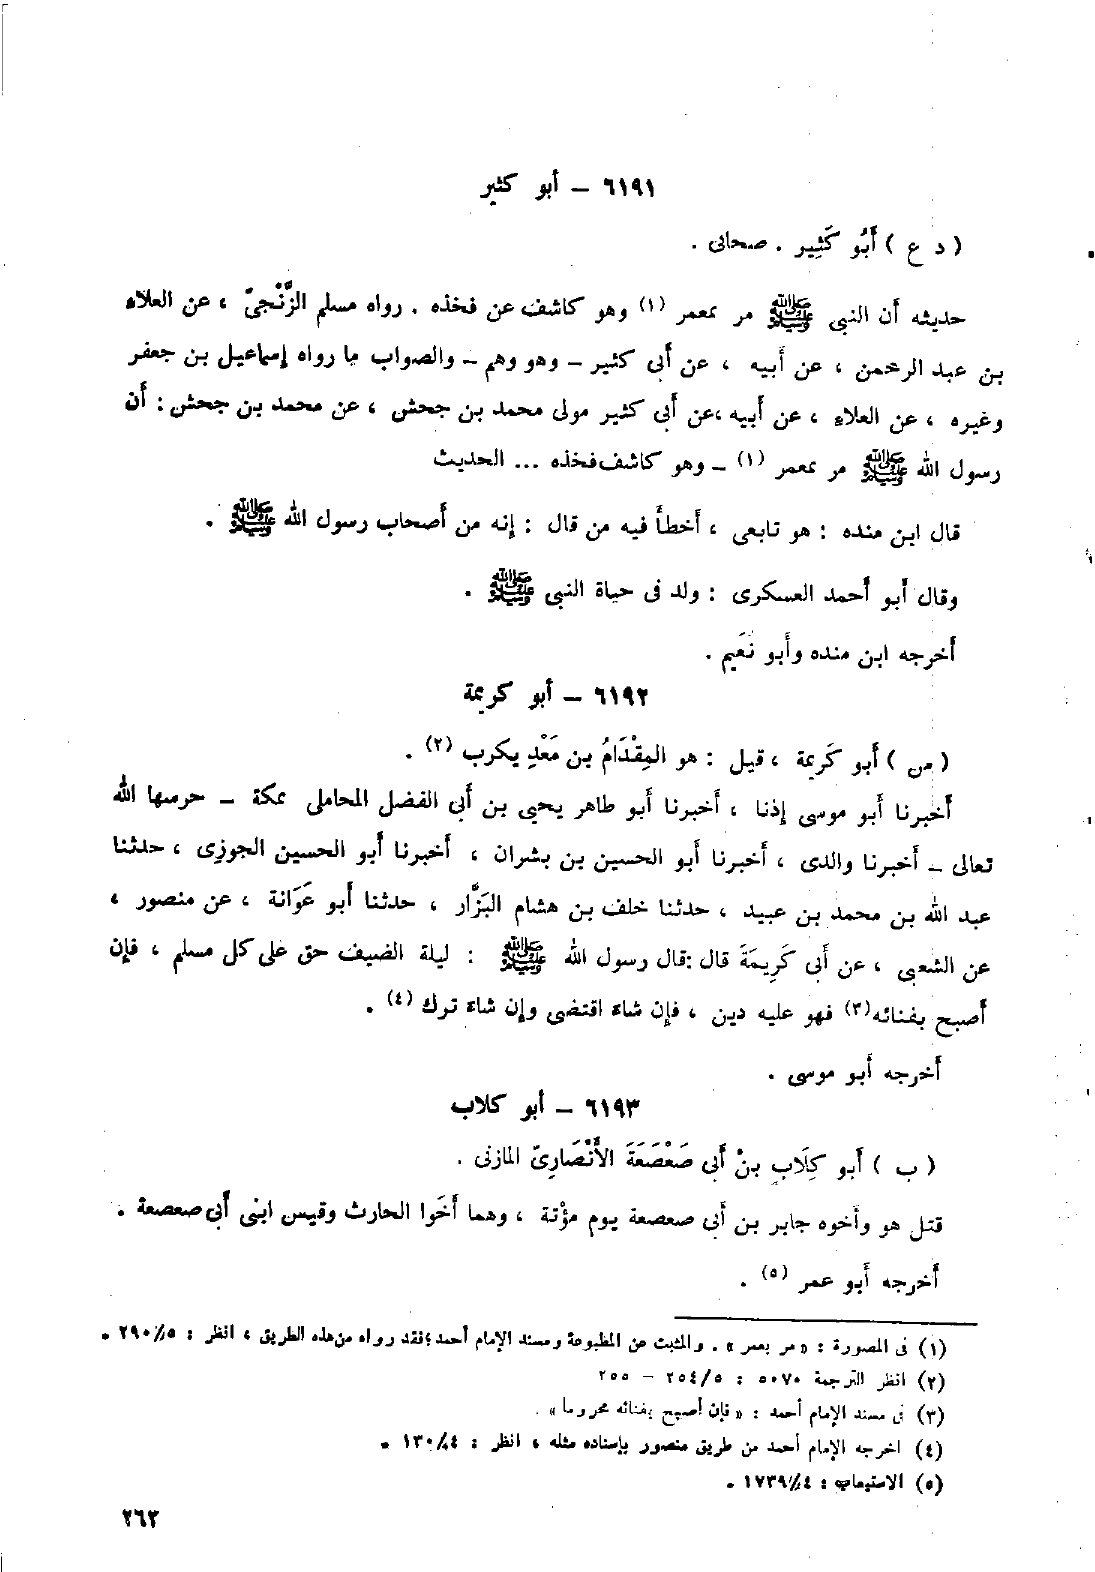 ٦١٩١ - أبو كثير
( د ع ) أَبُو كَثِير . صحابى .
حديثه أن النبى ﷺ مر بمعمر (١) وهو كاشف عن فخذه . رواه مسلم الزَّنْجىّ ، عن العلاء
بن عبد الرحمن ، عن أبيه ، عن أبى كثير - وهو وهم - والصواب ما رواه إسماعيل بن جعفر
وغيره ، عن العلاء ، عن أبيه ،عن أبى كثير مولى محمد بن جحش ، عن محمد بن جحش : أن
رسول الله ﷺ مر بمعمر (١) - وهو كاشف فخذه ... الحديث
قال ابن منده : هو تابعى ، أخطأ فيه من قال : إنه من أصحاب رسول الله ﷺ .
وقال أبو أحمد العسكرى : ولد فى حياة النبى ﷺ .
أخرجه ابن منده وأبو نُعَيم .
٦١٩٢ - أبو كريمة
( س ) أبو كَرِيمة ، قيل : هو المِقْدَامُ بن مَعْدِ يكرب (٢) .
أخبرنا أبو موسى إذنا ، أخبرنا أبو طاهر يحيى بن أبى الفضل المحاملى بمكة - حرسها الله
تعالى - أخبرنا والدى ، أخبرنا أبو الحسين بن بشران ، أخبرنا أبو الحسين الجوزى ، حدثنا
عبد الله بن محمد بن عبيد ، حدثنا خلف بن هشام البَزَّار ، حدثنا أبو عَوَانة ، عن منصور ،
عن الشعبى ، عن أبى كَرِيمَةَ قال :قال رسول الله ﷺ : ليلة الضيف حق على كل مسلم ، فإن
أصبح بفنائه(٣) فهو عليه دين ، فإن شاء اقتضى وإن شاء ترك (٤) .
أخرجه أبو موسى .
٦١٩٣ - أبو كلاب
( ب ) أبو كِلَابٍ بنْ أبى صَعْصَعَةَ الأَنْصَارِىّ المازنى .
قتل هو وأخوه جابر بن أبى صعصعة يوم مؤتة ، وهما أخَوا الحارث وقيس ابنى أبى صعصعة .
أخرجه أبو عمر (٥) .
(١) فى المصورة : «مر بعمر» . والمثبت عن المطبوعة ومسند الإمام أحمد ؛ فقد رواه من هذه الطريق ، انظر : ٢٩٠/٥ .
(٢) انظر الترجمة ٥٠٧٠ : ٢٥٤/٥ - ٢٥٥
(٣) فى مسند الإمام أحمد : « فإن أصبح بفنائه محروما » .
(٤) اخرجه الإمام أحمد من طريق منصور بإسناده مثله ، انظر : ١٣٠/٤ .
(٥) الاستيعاب : ١٧٣٩/٤ .
٢٦٣